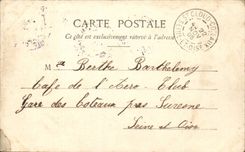 CARTE POSTALE
Ce côté est exclusivement réservé à l'adresse
M lle Berthe Barthelemy
Cafe de l'Aero-Club
Gare des Coteaux pres Suresne
Seine et Oise